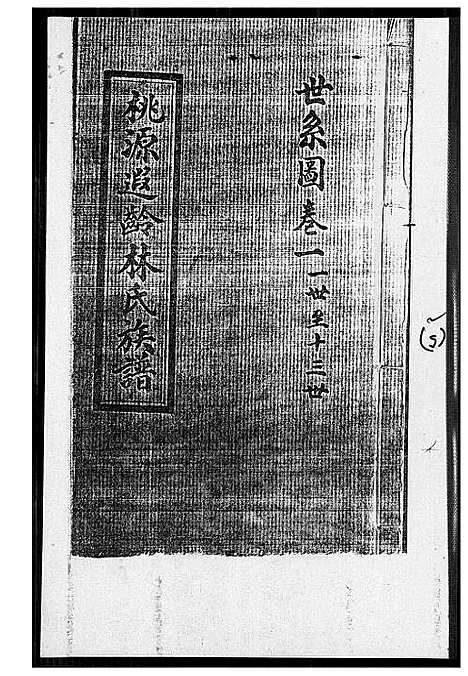 世系圖卷一 一世至十三世
桃源遐齡林氏族譜
(5)